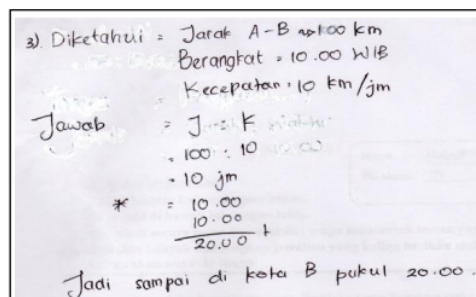 3). Diketahui = Jarak A-B ⇝ 100 km
Berangkat = 10.00 WIB
Kecepatan = 10 km/jm
Jawab = J : K
= 100 : 10
= 10 jm
* = 10.00
10.00 +
20.00
Jadi sampai di kota B pukul 20.00.